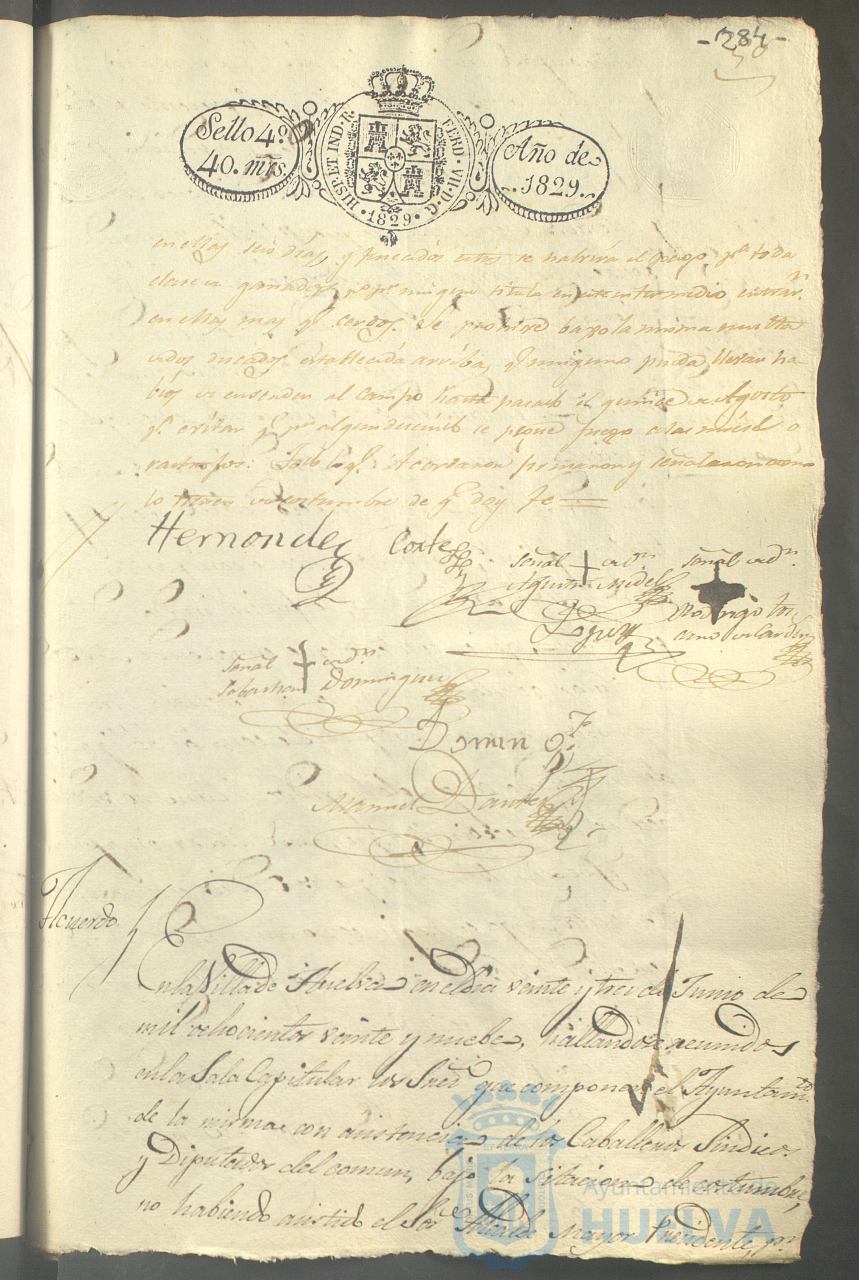 -284-
50
Sello 4º
40. mrs
HISP. ET IND. R. FERD. VII. D. G. 1829.
Año de
1829.
en ellas seis días, y pasados estos se habrirá el paso pª toda
clase de ganados, sin qe ninguna en este intermedio entrar
en ellas mas qe cerdos. Se prohive bajo la misma multa
de dos ducados establecida arriba, qe ninguno pueda llevar ha
bíos de encender al campo hasta pasado el quince de Agosto
pª evitar qe pr algun descuido se pegue fuego a las mieses o
rastrojos: Todo lo qe Acordaron firmaron y señalaron como
lo tienen de costumbre de qe doy fe =
Hernandez Cortes
señal + de Dn señal de Dn
Agustin Midel
Lopez
Rodrigo
señal + de Dn
Sebastian Dominguez
Domin
Manuel
Acuerdo
En la Villa de Huelva en el dia veinte y tres de Junio de
mil ochocientos veinte y nuebe, hallandose reunidos
en la Sala Capitular los Sres que componen el Ayuntamto
de la misma con asistencia de los Caballeros Sindicos
y Diputados del comun, bajo la sitacion de costumbre,
no habiendo asistido el Sor Alcalde Mayor Presidente, pr
Ayuntamiento de
HUELVA